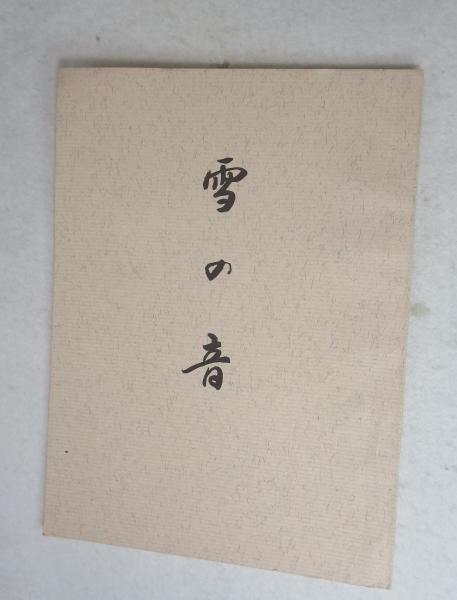 雪の音